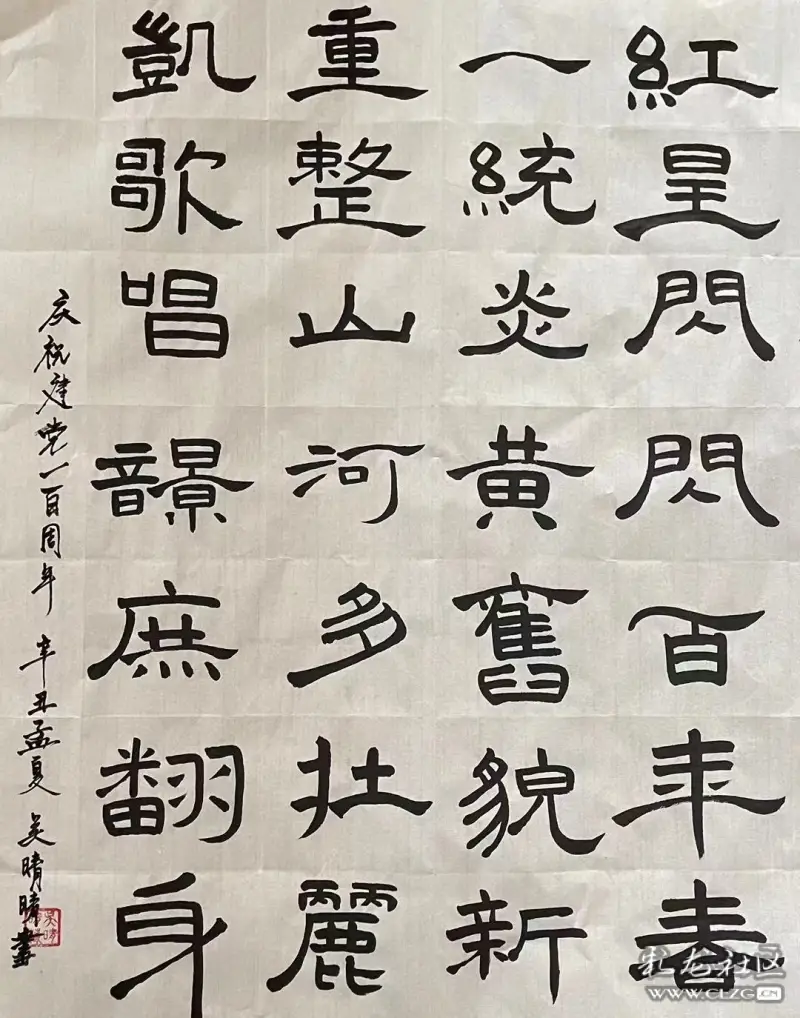 紅星閃閃百年春
一統炎黃舊貌新
重整山河多壯麗
凱歌唱響庶翻身
庆祝建党一百周年 辛丑孟夏 吴晴晴書
社区
WWW.CLZG.CN